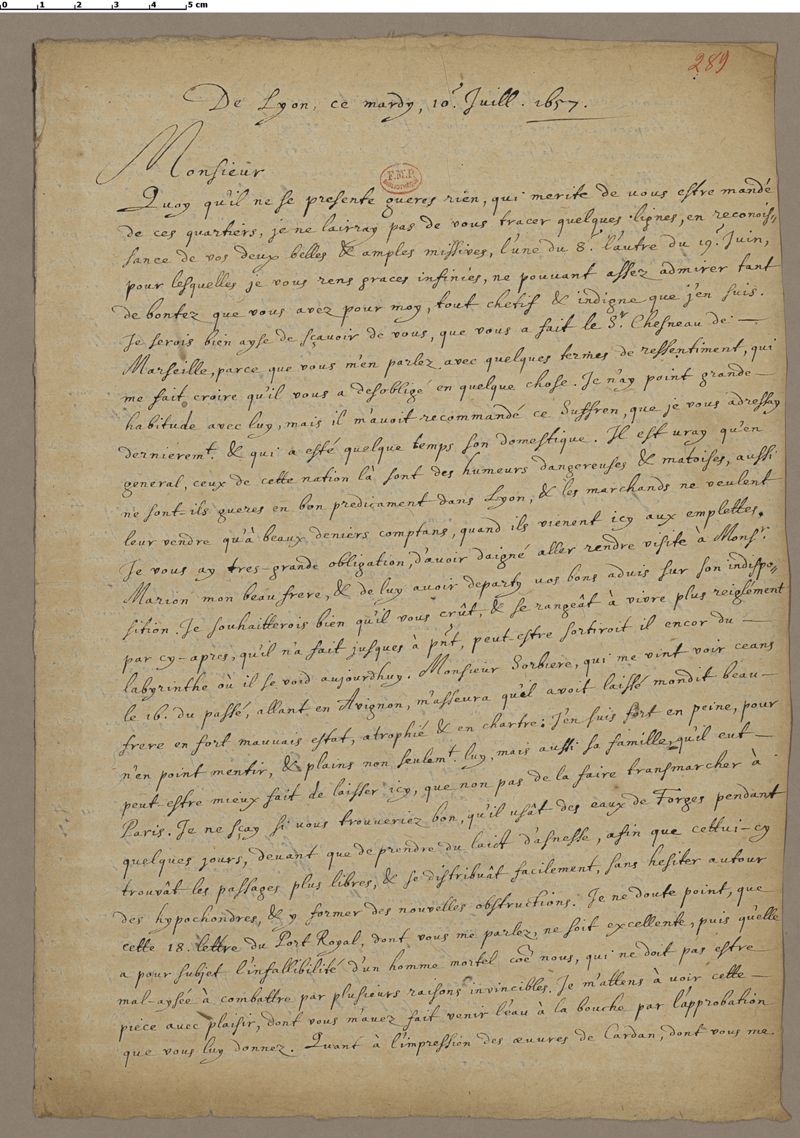 0 1 2 3 4 5 cm
289
De Lyon, ce mardy, 10.e Juill. 1657.
F.M.P.
Monsieur
Quoy qu'il ne se presente gueres rien, qui merite de vous estre mandé
de ces quartiers, je ne lairray pas de vous tracer quelques lignes, en reconois-
sance de vos deux belles & amples missives, l'une du 8.e l'autre du 19.e Juin,
pour lesquelles je vous rens graces infinies, ne pouvant assez admirer tant
de bontez que vous avez pour moy, tout chetif & indigne que j'en suis.
Je serois bien ayse de sçavoir de vous, que vous a fait le S.r Chesneau de —
Marseille, parce que vous m'en parlez avec quelques termes de ressentiment, qui
me fait croire qu'il vous a desobligé en quelque chose. Je n'ay point grande —
habitude avec luy, mais il m'avoit recommandé ce Suffren, que je vous adressay
dernierem.t & qui a esté quelque temps son domestique. Il est vray qu'en
general, ceux de cette nation là sont des humeurs dangereuses & matoises, aussi
ne sont-ils gueres en bon predicament dans Lyon, & les marchands ne veulent
leur vendre qu'à beaux deniers comptans, quand ils vienent icy aux emplettes.
Je vous ay tres-grande obligation, d'avoir daigné aller rendre visite à Mons.r
Marion mon beau frere, & de luy avoir departy vos bons advis sur son indispo-
sition. Je souhaitterois bien qu'il vous crût, & se rangeât à vivre plus reiglément
par cy-apres, qu'il n'a fait jusques à pñt, peut estre sortiroit il encor du —
labyrinthe où il se void aujourdhuy. Monsieur Sorbiere, qui me vint voir ceans
le 16. du passé, allant en Avignon, m'asseura qu'il avoit laissé mondit beau —
frere en fort mauvais estat, atrophié & en chartre: J'en suis fort en peine, pour
n'en point mentir, & plains non seulem.t luy, mais aussi sa famille, qu'il eut —
peut estre mieux fait de laisser icy, que non pas de la faire transmarcher à
Paris. Je ne sçay si vous trouveriez bon, qu'il usât des eaux de Forges pendant
quelques jours, devant que de prendre du laict d'asnesse, afin que cettui-cy
trouvât les passages plus libres, & se distribuât facilement, sans hesiter autour
des hypochondres, & y former des nouvelles obstructions. Je ne doute point, que
cette 18. lettre du Port Royal, dont vous me parlez, ne soit excellente, puis qu'elle
a pour subjet l'infallibilité d'un homme mortel coe nous, qui ne doit pas estre
mal-aysée à combattre par plusieurs raisons invincibles. Je m'attens à voir cette —
piece avec plaisir, dont vous m'avez fait venir l'eau à la bouche par l'approbation
que vous luy donnez. Quant à l'impression des œuvres de Cardan, dont vous me